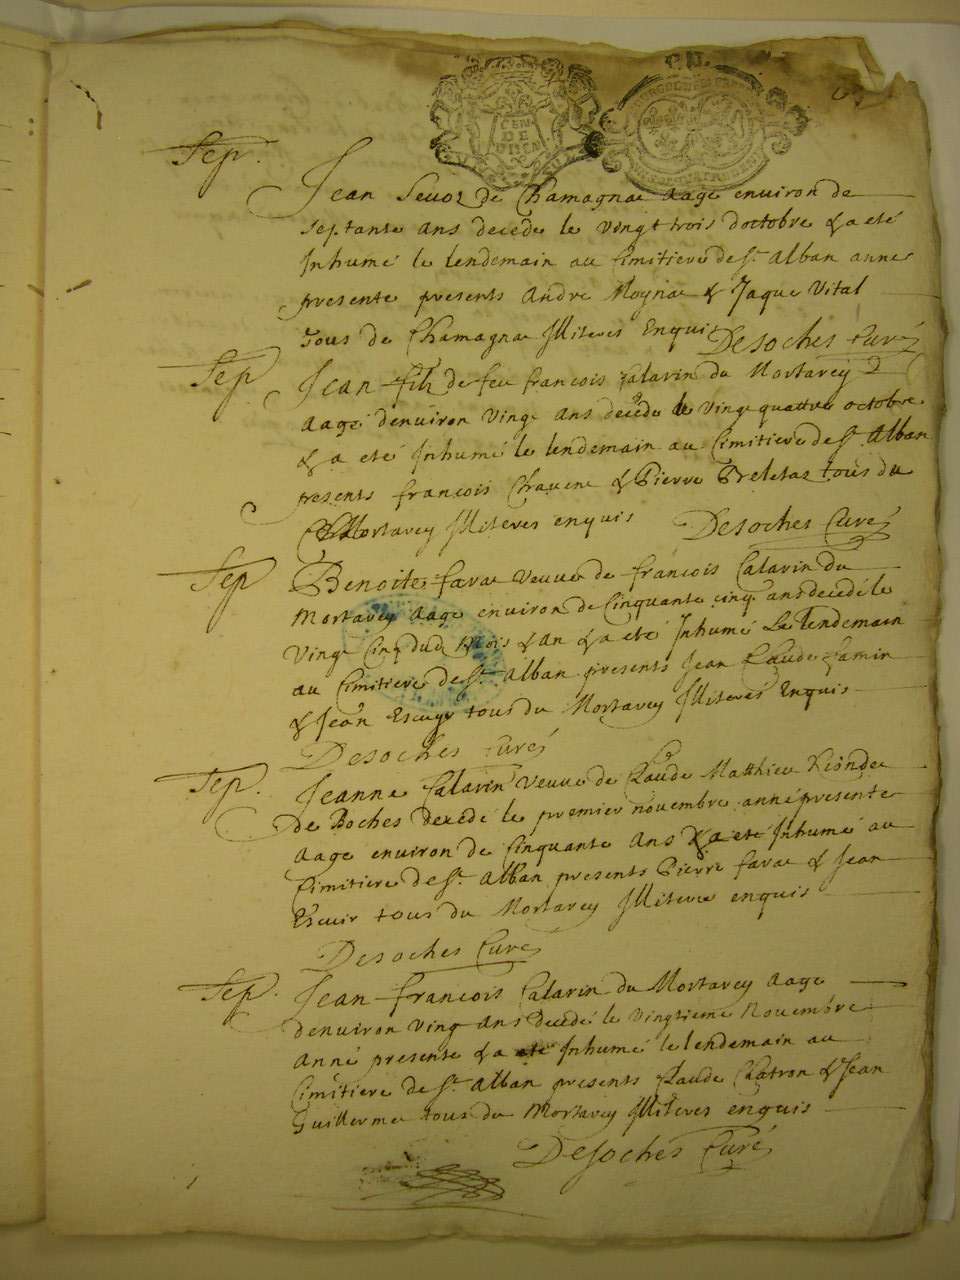 GEN
DE
Sep.
Jean Sevoz de Chamagnac aage environ de
septante ans decede le vingt trois d'octobre & a eté
Inhumé le lendemain au Cimitiere de St. Alban anne
presente presents Andre Moynac & Jaque Vital
tous de Chamagnac Illiteres Enquis Desoches Curé
Sep
Jean fils de feu francois Calarin du Mortarey
aagé denviron vingt ans decede le vingt quattre octobre
& a eté Inhumé le lendemain au Cimitiere de St. Alban
presents francois & Pierre tous du
Mortarey Illiteres enquis Desoches Curé
Sep
Benoite favac veuve de francois Calarin du
Mortarey aage environ de Cinquante cinq ans decedé le
vingt Cinq dud mois & an & a eté Inhumé Le lendemain
au Cimitiere de St. Alban presents Jean Claude
& Jean tous du Mortarey Illiteres Enquis
Desoches Curé
Sep.
Jeanne Calarin veuve de Claude Matthieu
de Boches decedé le premier novembre anné presente
aage environ de Cinquante ans & a eté Inhumé au
Cimitiere de St. Alban presents Pierre favac & Jean
Escuir tous du Mortarey Illitere enquis
Desoches Curé
Sep.
Jean francois Calarin du Mortarey aage
denviron vingt ans decedé le vingtieme Novembre
Anné presente & a eté Inhumé le lendemain au
Cimitiere de St. Alban presents Claude Chatron & Jean
Guillerme tous du Mortarey Illiteres enquis
Desoches Curé